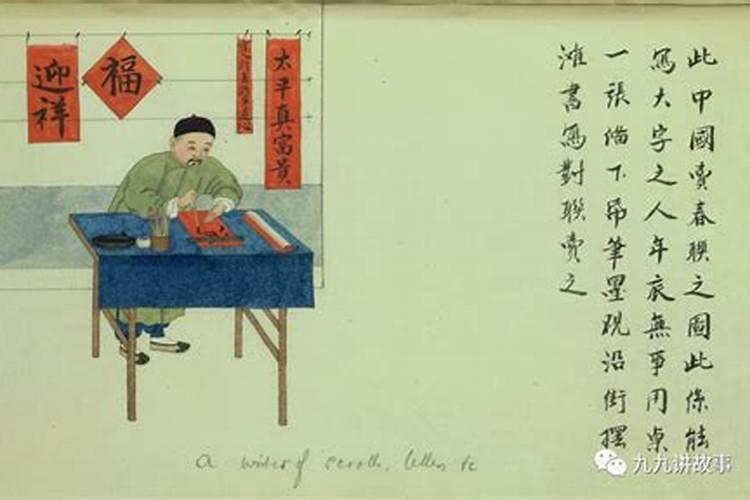 此中國賣春聯之圖此係能
寫大字之人年底無事用桌
一張俻下帋筆墨硯沿街擺
灘書寫對聯賣之
太平真富貴
福
迎祥
A writer of scrolls, letters &c
九九讲故事